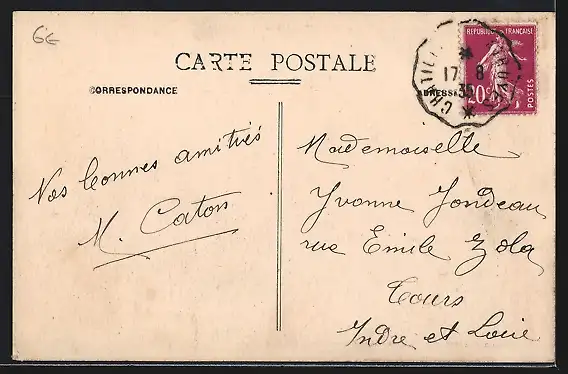 6€
CARTE POSTALE
CORRESPONDANCE
ADRESSE
REPUBLIQUE FRANÇAISE
20c
POSTES
17 8
35
Nos bonnes amitiés
M. Caton
Mademoiselle
Yvonne Jondeau
rue Emile Zola
Tours
Indre et Loire